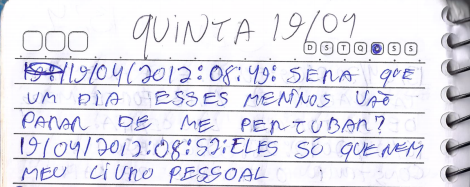 QUINTA 19/04
D S T Q Q S S
19/04/2012:08:49: SERA QUE
UM DIA ESSES MENINOS VÃO
PARAR DE ME PERTUBAR?
19/04/2012:08:52: ELES SÓ QUEREM
MEU LIVRO PESSOAL